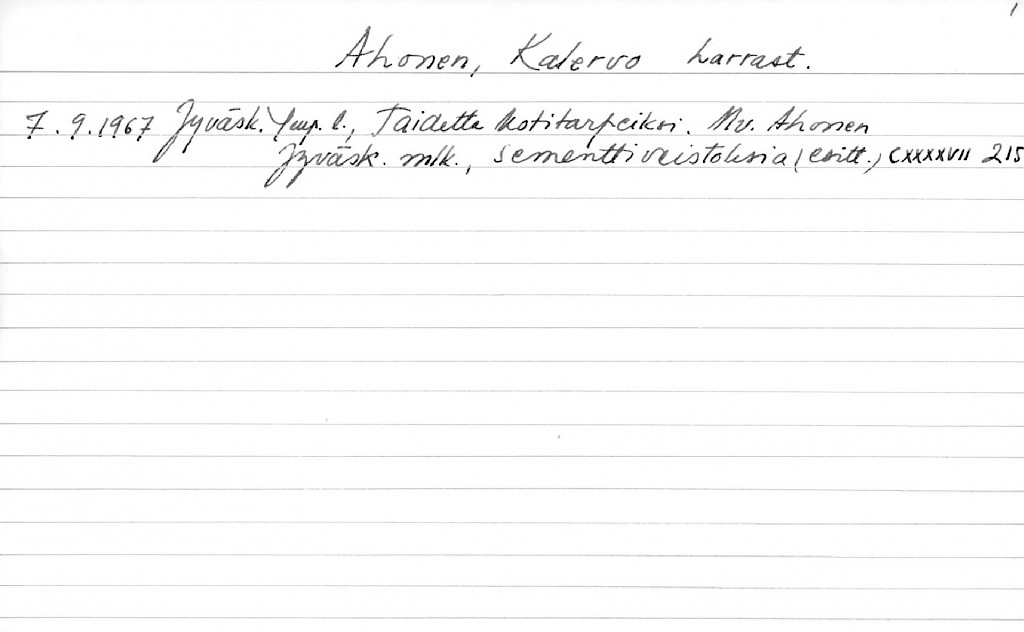 1
Ahonen, Kalervo harrast.
7.9.1967 Jyväsk. Ymp. l., Taidetta kotitarpeiksi. Mv. Ahonen
Jyväsk. mlk., sementtiveistoksia (esitt.) CXXXXVII 215